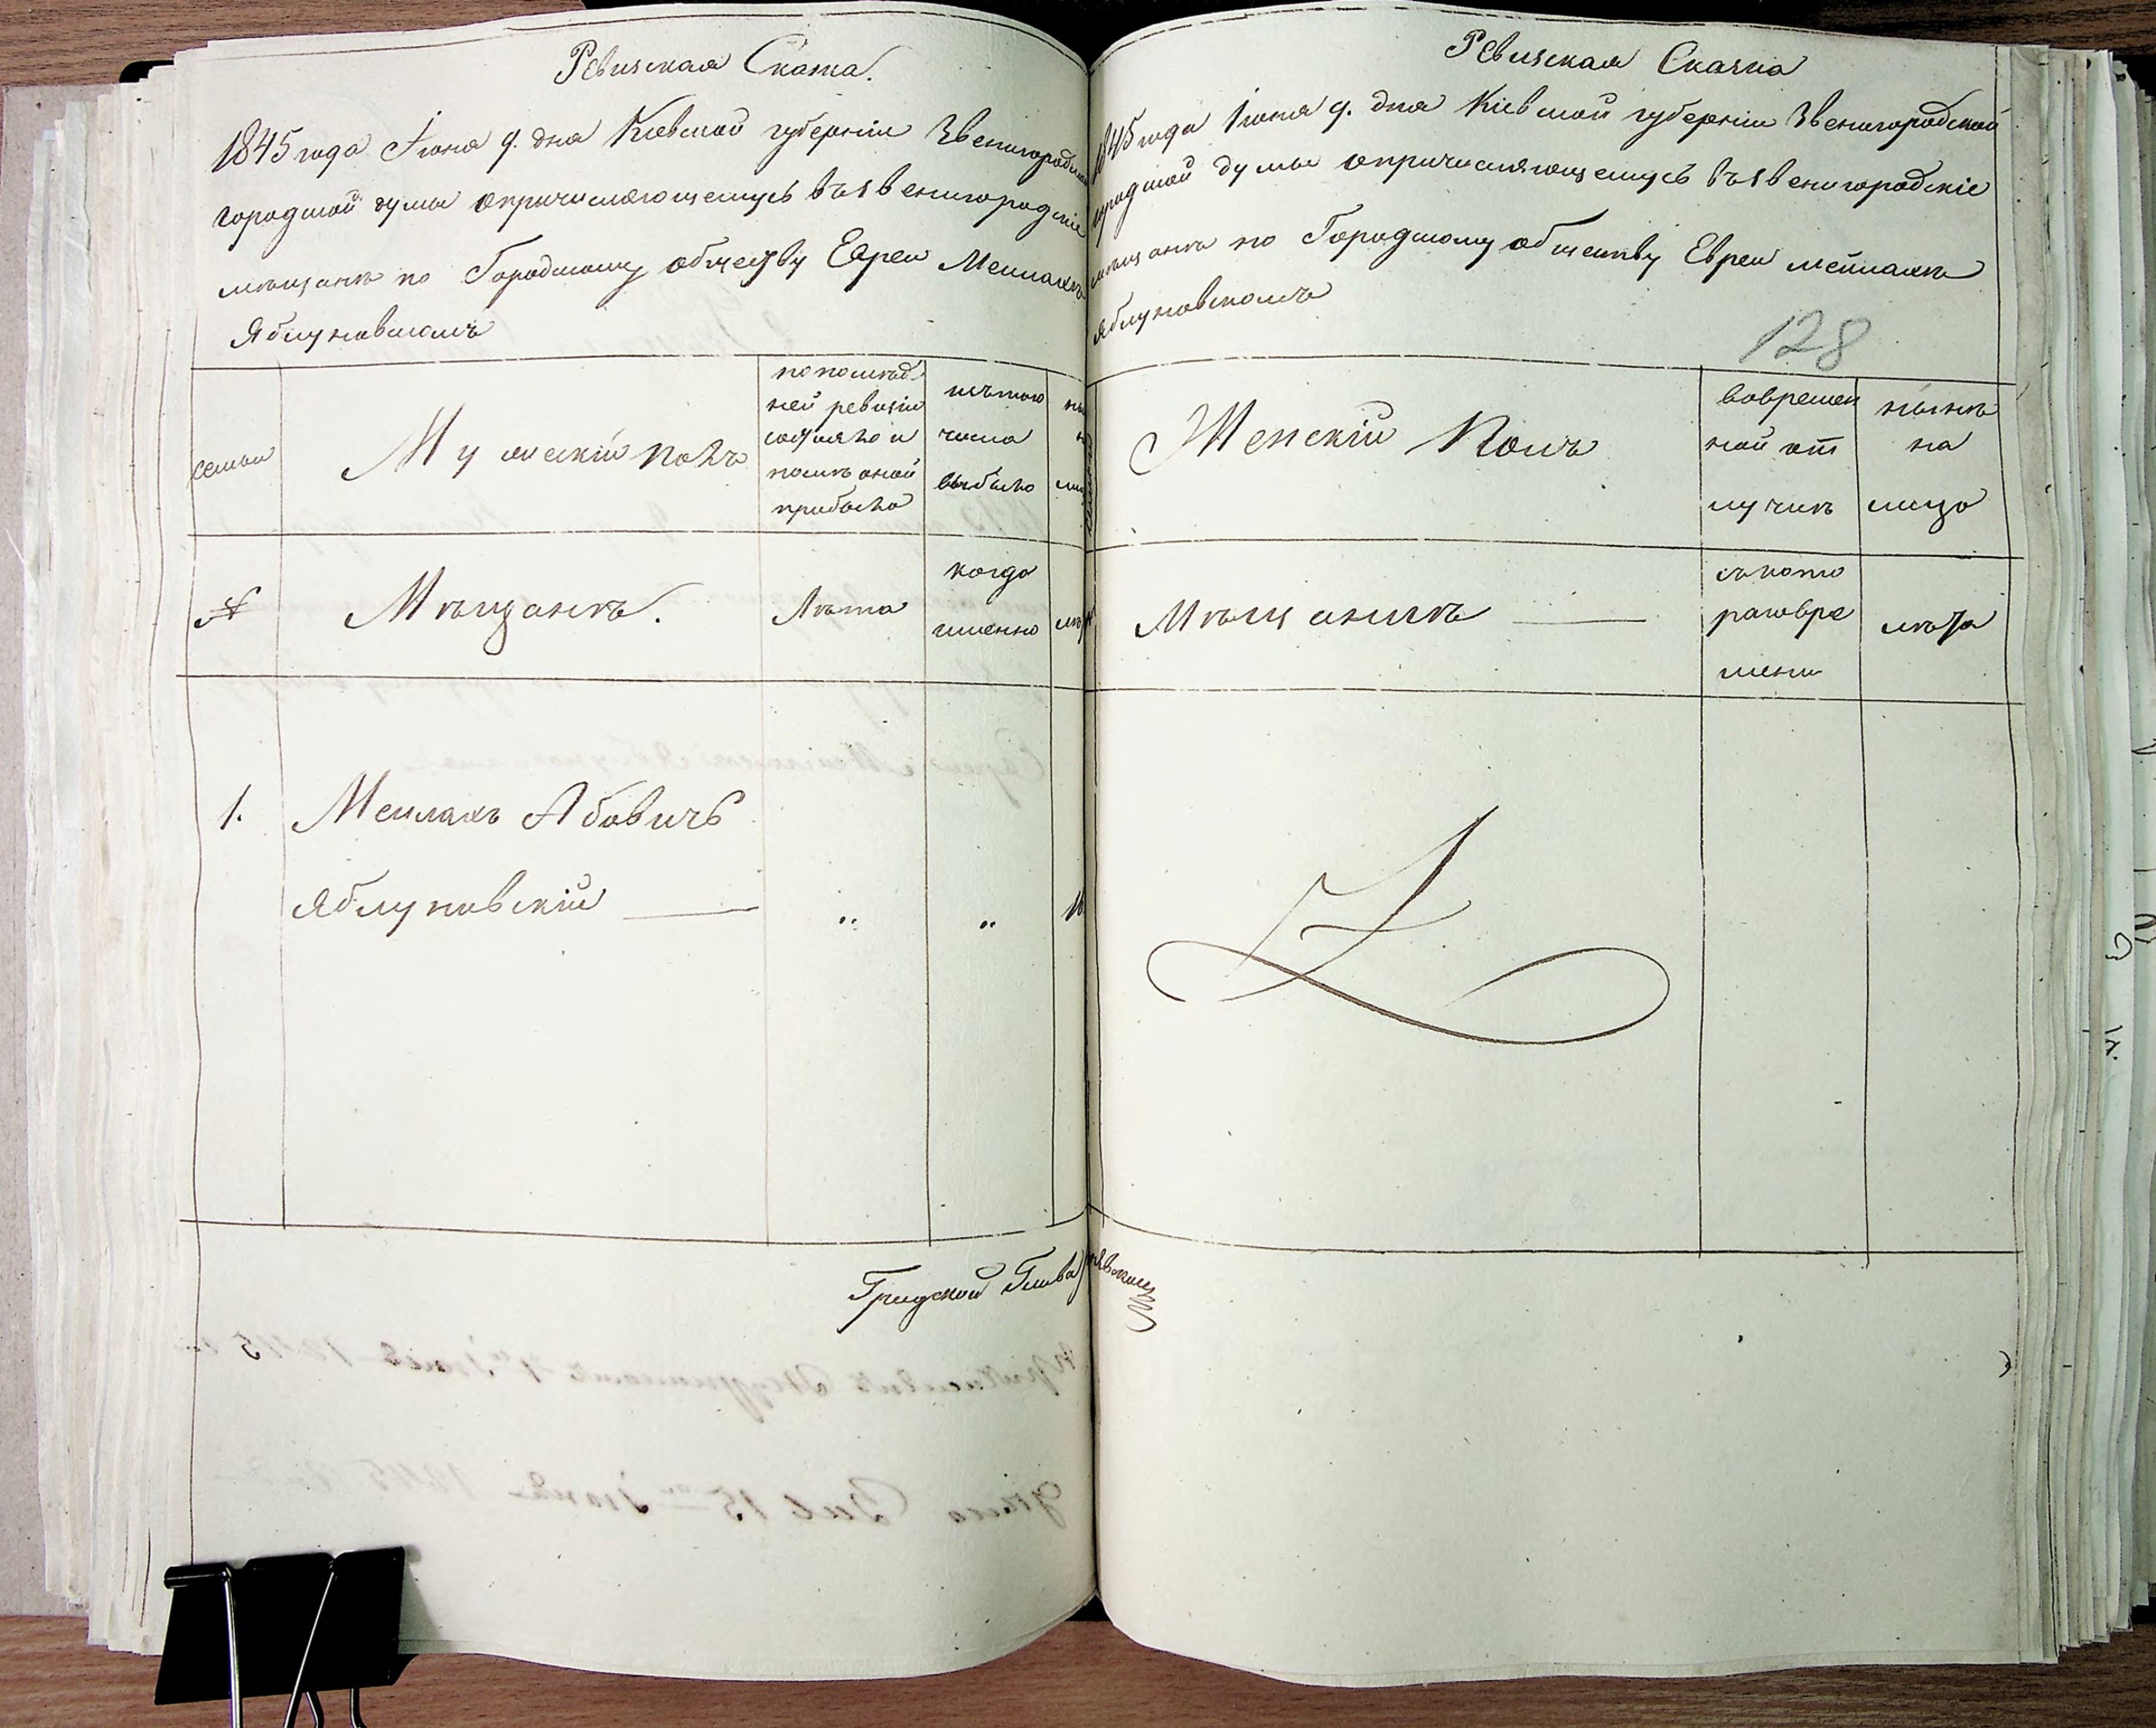 Ревизская Сказка.
1845 года Іюня 9. дня Кіевской губерніи Звенигородской
городской думы опричисляющемуся въ Звенигородскіе
мѣщане по Городскому обществу Еврея Мейлаха
Яблуновскомъ
семьи
Мужескій полъ
по послѣд-
ней ревизіи
состояло и
послѣ оной
прибыло
изъ того
числа
выбыло
№
Мѣщане.
Лѣта
когда
именно
1.
Меилахъ Абовичъ
Яблуновскій
"
"
16
Градской Глава
Ревизская Сказка
1845 года Іюня 9. дня Кіевской губерніи Звенигородской
городской думы опричисляющемусь въ Звенигородскіе
мѣщане по Городскому обществу Еврея Мейлаха
Яблуновскомъ
128
Женскій Полъ
во времен
ной от
лучкѣ
нынѣ
на
лицо
Мѣщанкѣ
съ кото
раго вре
мени
лѣта